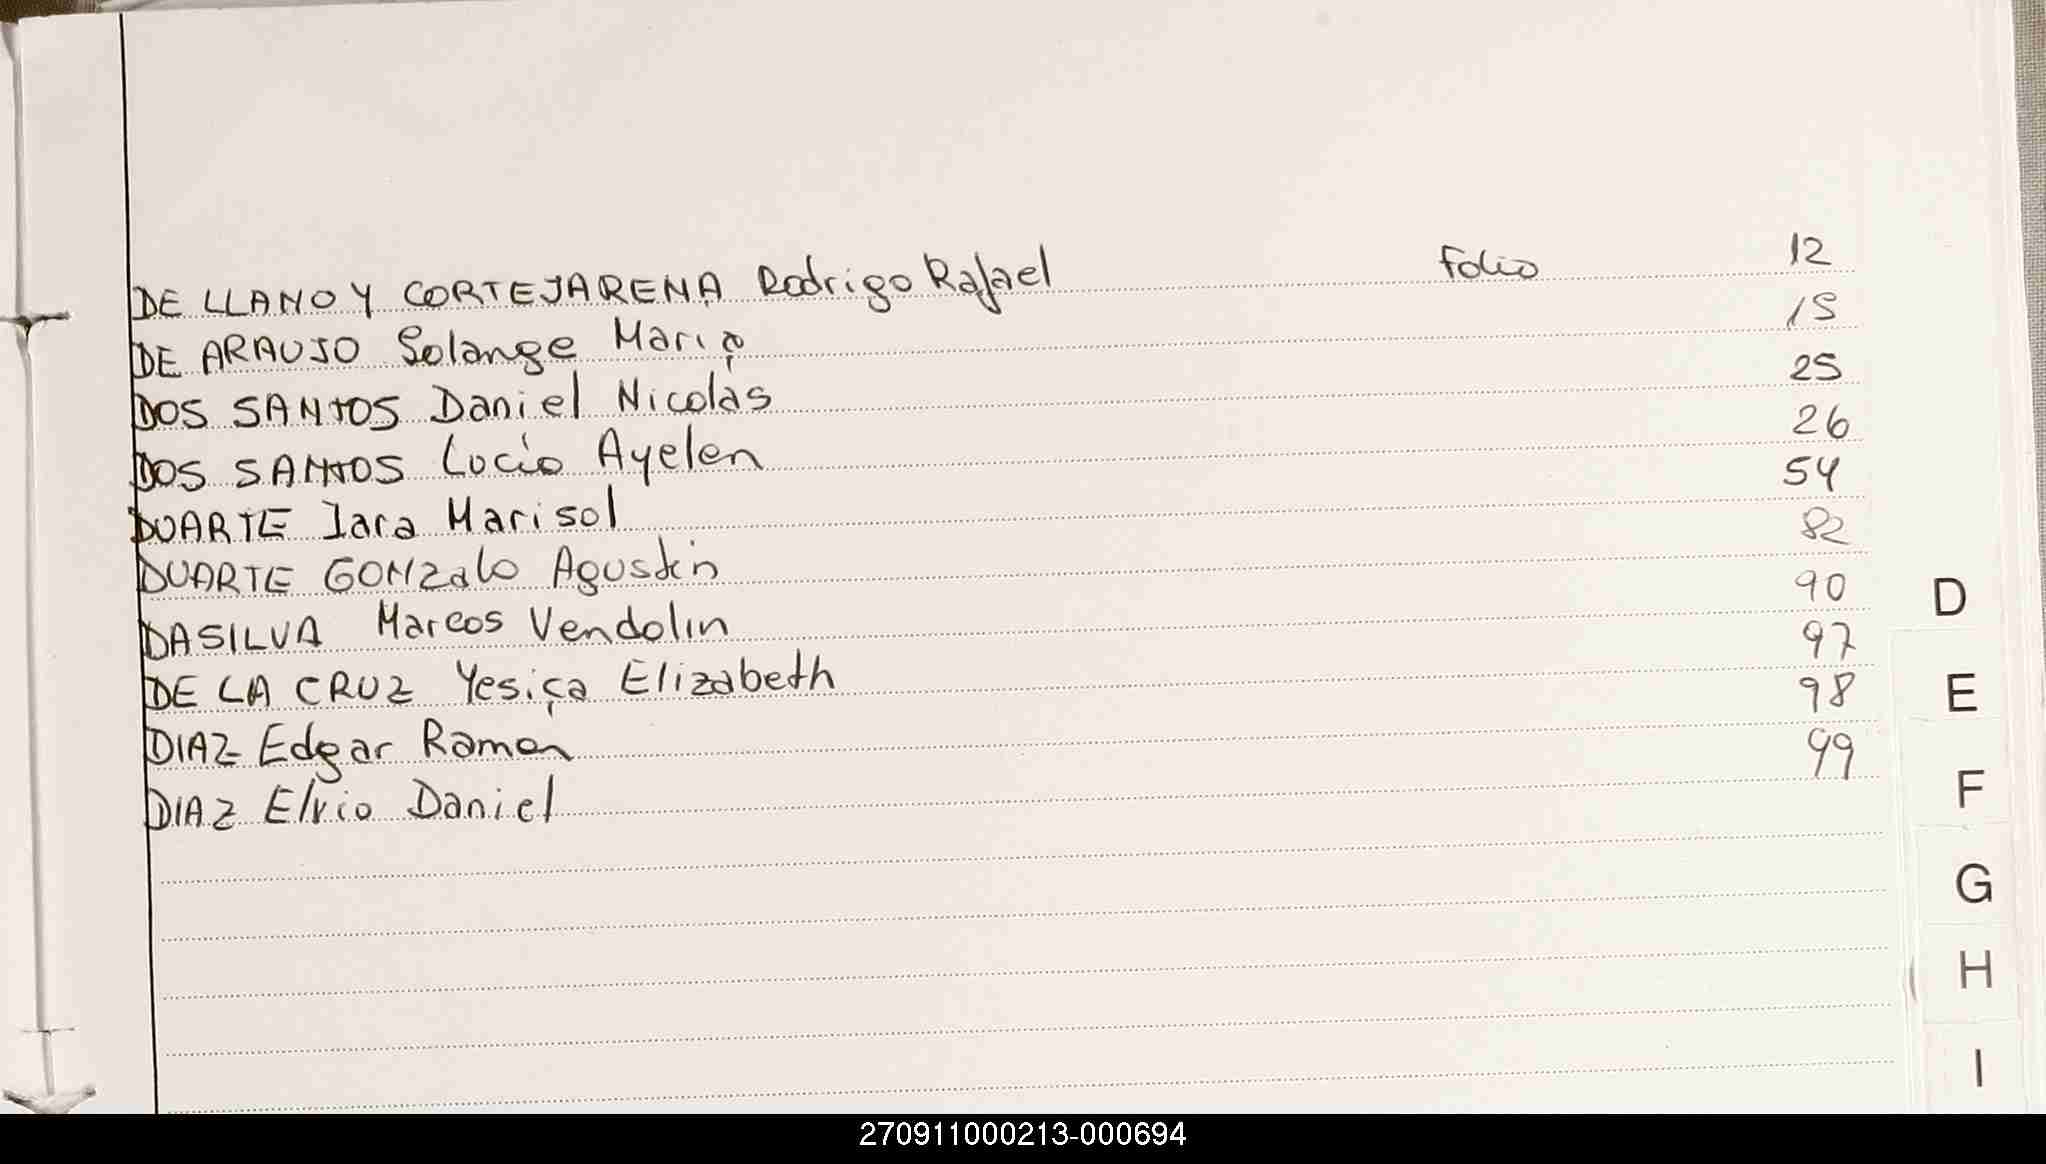 DE LLANO Y CORTEJARENA Rodrigo Rafael Folio 12
DE ARAUJO Solange Maria 15
DOS SANTOS Daniel Nicolás 25
DOS SANTOS Lucia Ayelen 26
DUARTE Iara Marisol 54
DUARTE GONZalo Agustin 82
DASILVA Marcos Vendolin 90
DE LA CRUZ Yesica Elizabeth 97
DIAZ Edgar Ramon 98
DIAZ Elvio Daniel 99
D
E
F
G
H
I
270911000213-000694